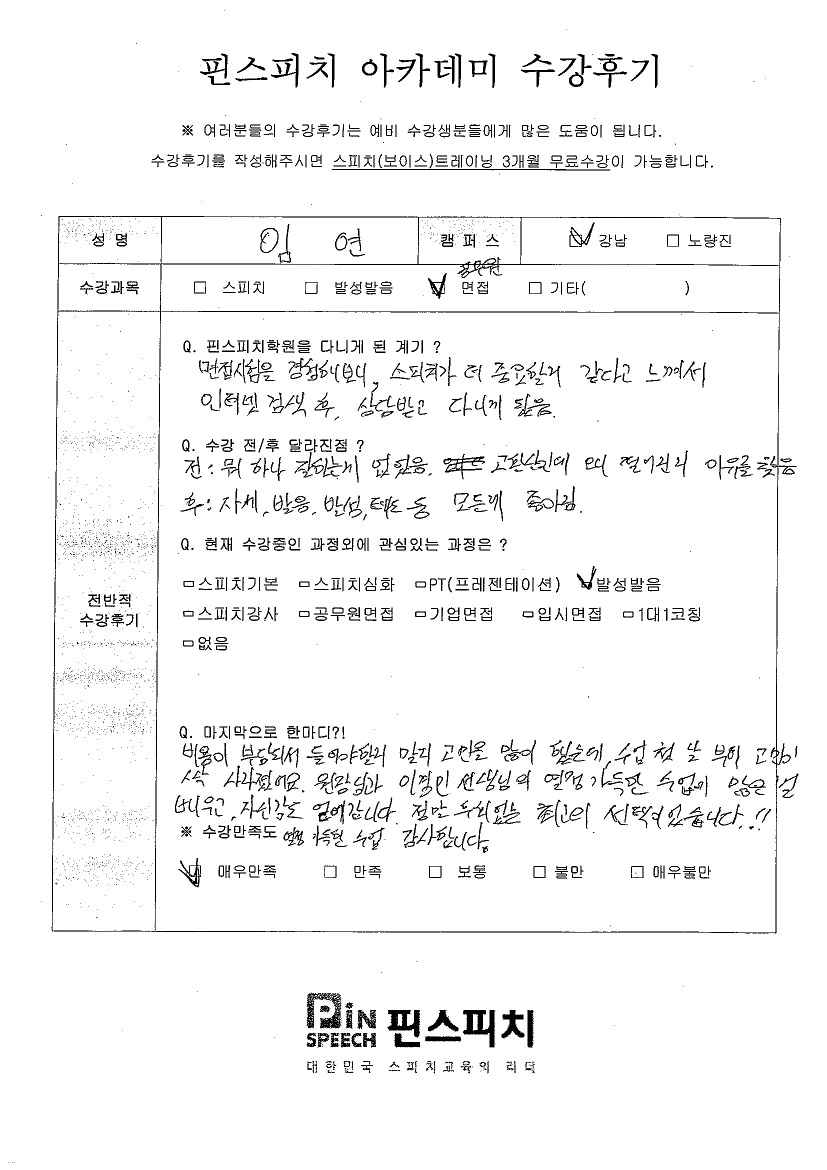 핀스피치 아카데미 수강후기
※ 여러분들의 수강후기는 예비 수강생분들에게 많은 도움이 됩니다.
수강후기를 작성해주시면 스피치(보이스)트레이닝 3개월 무료수강이 가능합니다.
성 명 임 연 캠 퍼 스 ☑ 강남 □ 노량진
공무원
수강과목 □ 스피치 □ 발성발음 ☑ 면접 □ 기타( )
Q. 핀스피치학원을 다니게 된 계기 ?
면접시험을 경험해보니, 스피치가 더 중요할거 같다고 느껴서
인터넷 검색 후, 상담받고 다니게 됐음.
Q. 수강 전/후 달라진점 ?
전 : 뭐 하나 잘하는게 없었음. 떨어진 이유를 찾음
후 : 자세, 발음, 발성, 태도 등 모든게 좋아짐.
Q. 현재 수강중인 과정외에 관심있는 과정은 ?
□스피치기본 □스피치심화 □PT(프레젠테이션) ☑발성발음
□스피치강사 □공무원면접 □기업면접 □입시면접 □1대1코칭
□없음
전반적
수강후기
Q. 마지막으로 한마디?!
비용이 부담돼서 들어야할지 말지 고민을 많이 했는데, 수업 첫 날 부터 고민이
싹 사라졌어요. 원장님과 선생님의 열정 가득한 수업에 많은 걸
배우고, 자신감도 얻어갑니다. 정말 후회없는 최고의 선택이었습니다..!!
※ 수강만족도 열정 가득한 수업 감사합니다.
☑ 매우만족 □ 만족 □ 보통 □ 불만 □ 매우불만
PiN SPEECH 핀스피치
대한민국 스피치교육의 리더